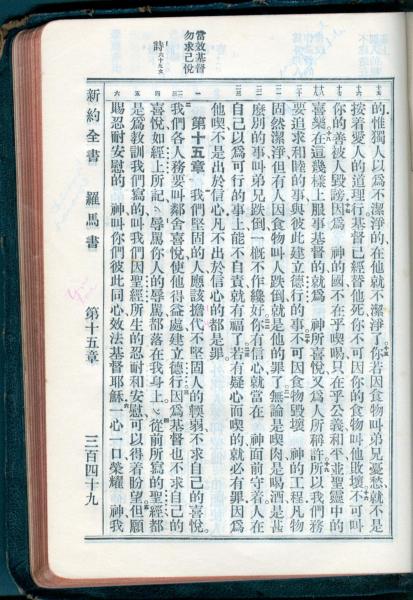 當效基督
勿求己悅
詩六十九
的惟獨人以為不潔淨的在他就不潔淨了你若因食物叫弟兄憂愁就不是
按着愛人的道理行基督已經替他死你不可因你的食物叫他敗壞不可叫
你的善被人毀謗因為 神的國不在乎喫喝只在乎公義和平並聖靈中的
喜樂在這幾樣上服事基督的就為 神所喜悅又為人所稱許所以我們務
要追求和睦的事與彼此建立德行的事不可因食物毀壞 神的工程凡物
固然潔淨但有人因食物叫人跌倒就是他的罪了無論是喫肉是喝酒是甚
麼別的事叫弟兄跌倒一概不作纔好你有信心就當在 神面前守着人在
自己以為可行的事上能不自責就有福了若有疑心而喫的就必有罪因為
他喫不是出於信心凡不出於信心的都是罪
第十五章 我們堅固的人應該擔代不堅固人的輭弱不求自己的喜悅
我們各人務要叫鄰舍喜悅使他得益處建立德行因為基督也不求自己的
喜悅如經上所記辱罵你人的辱罵都落在我身上從前所寫的聖經都
是為教訓我們寫的叫我們因聖經所生的忍耐和安慰可以得着盼望但願
賜忍耐安慰的 神叫你們彼此同心效法基督耶穌一心一口榮耀 神我
新約全書 羅馬書 第十五章 三百四十九